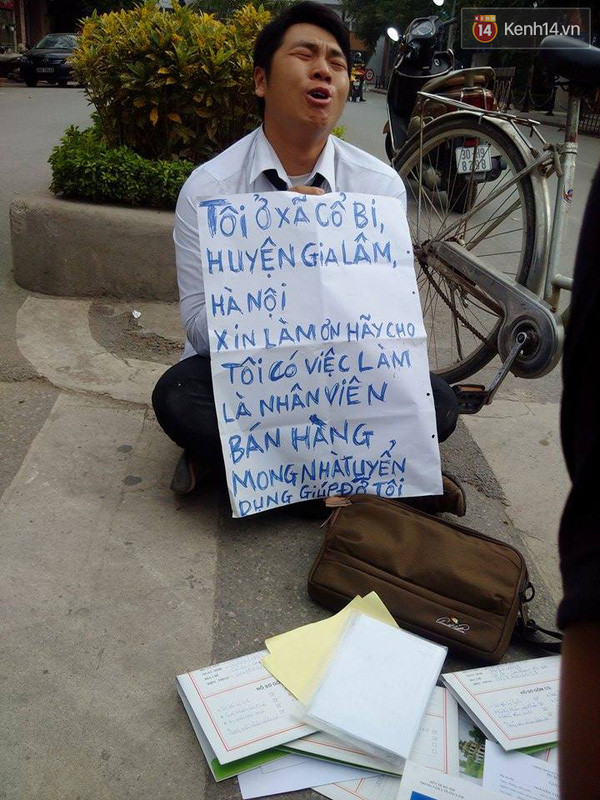 14
KENH
Kenh14.vn
TÔI Ở XÃ CỔ BI,
HUYỆN GIA LÂM,
HÀ NỘI
XIN LÀM ƠN HÃY CHO
TÔI CÓ VIỆC LÀM
LÀ NHÂN VIÊN
BÁN HÀNG
MONG NHÀ TUYỂN
DỤNG GIÚP ĐỠ TÔI